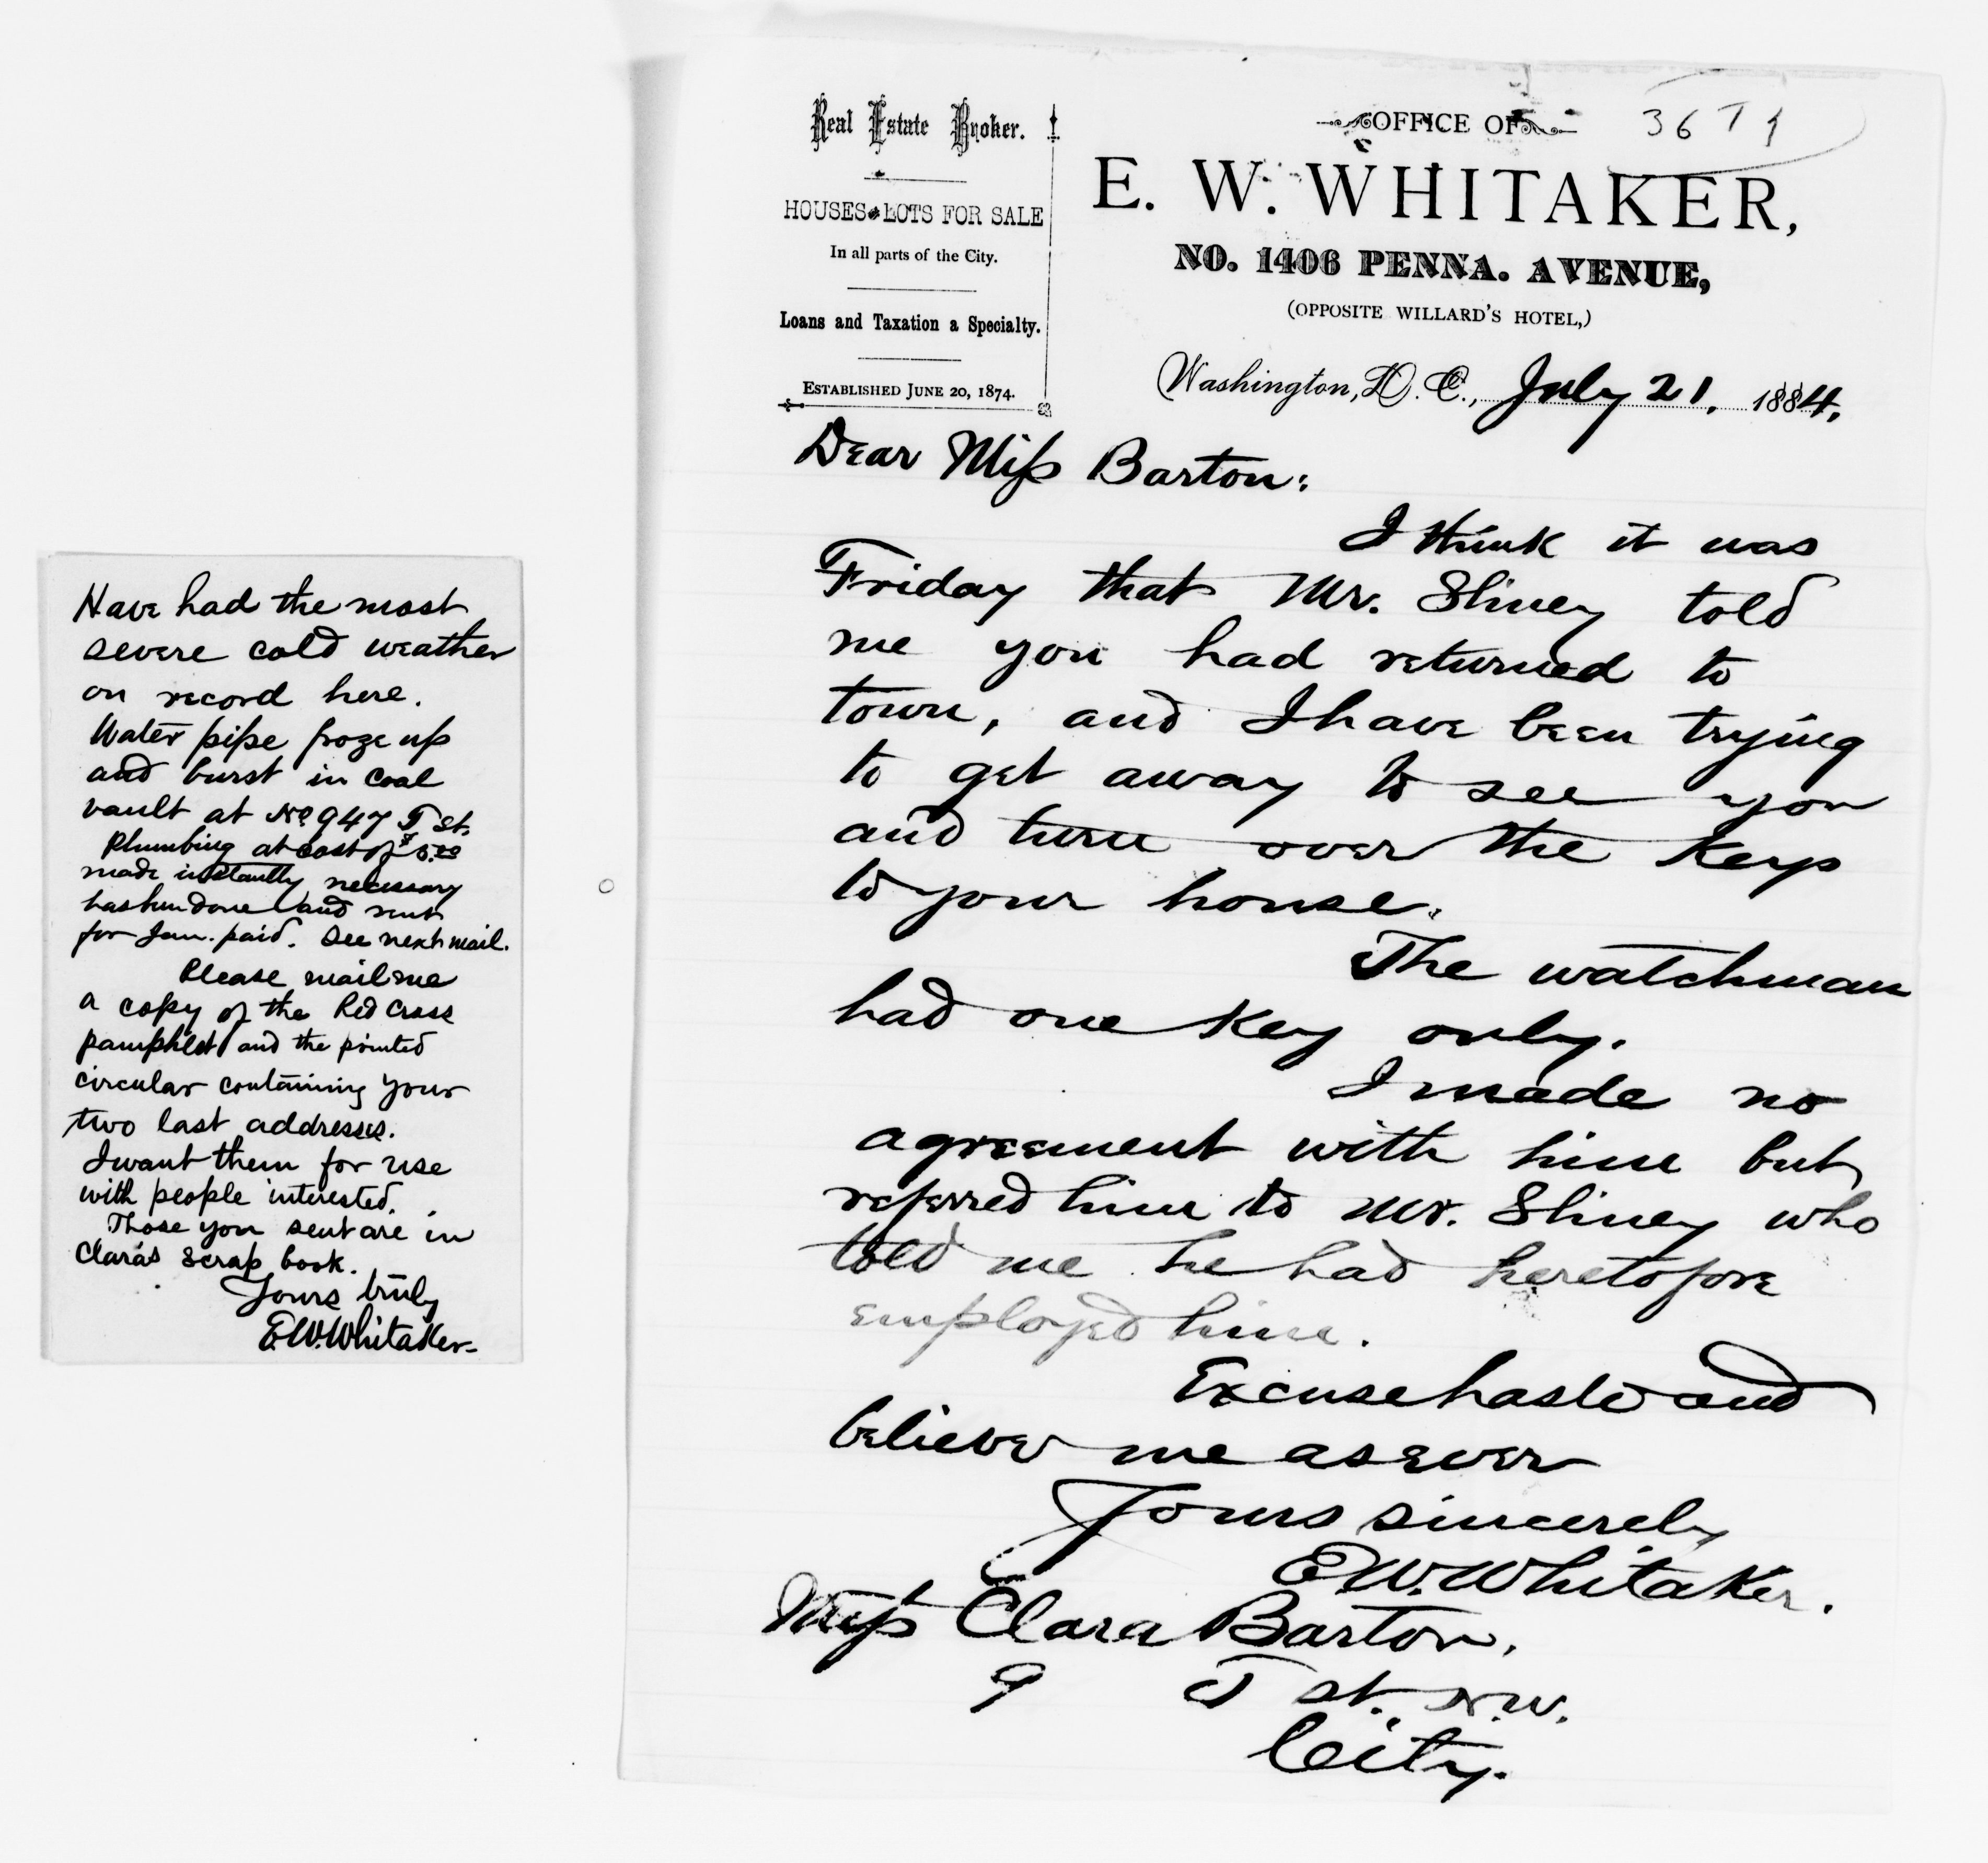 Have had the most
severe cold weather
on record here.
Water pipe froze up
and burst in coal
vault at No 947 T St.
Plumbing at cost of $5.00
made instantly necessary
has been done and rent
for Jan. paid. See next mail.
Please mail me
a copy of the Red Cross
pamphlet and the printed
circular containing your
two last addresses.
I want them for use
with people interested.
Those you sent are in
Clara's scrap book.
Yours truly
E.W. Whitaker.
Real Estate Broker.
HOUSES & LOTS FOR SALE
In all parts of the City.
Loans and Taxation a Specialty.
ESTABLISHED JUNE 20, 1874.
OFFICE OF
E. W. WHITAKER,
NO. 1406 PENNA. AVENUE,
(OPPOSITE WILLARD'S HOTEL,)
Washington, D. C., July 21, 1884.
Dear Miss Barton:
I think it was
Friday that Mr. Shiney told
me you had returned to
town, and I have been trying
to get away to see you
and turn over the Keys
to your house.
The watchman
had one Key only.
I made no
agreement with him but
referred him to Mr. Shiney who
told me he had heretofore
employed him.
Excuse haste and
believe me as ever
Yours sincerely
E.W. Whitaker.
Miss Clara Barton,
9 T St. N.W.
City.